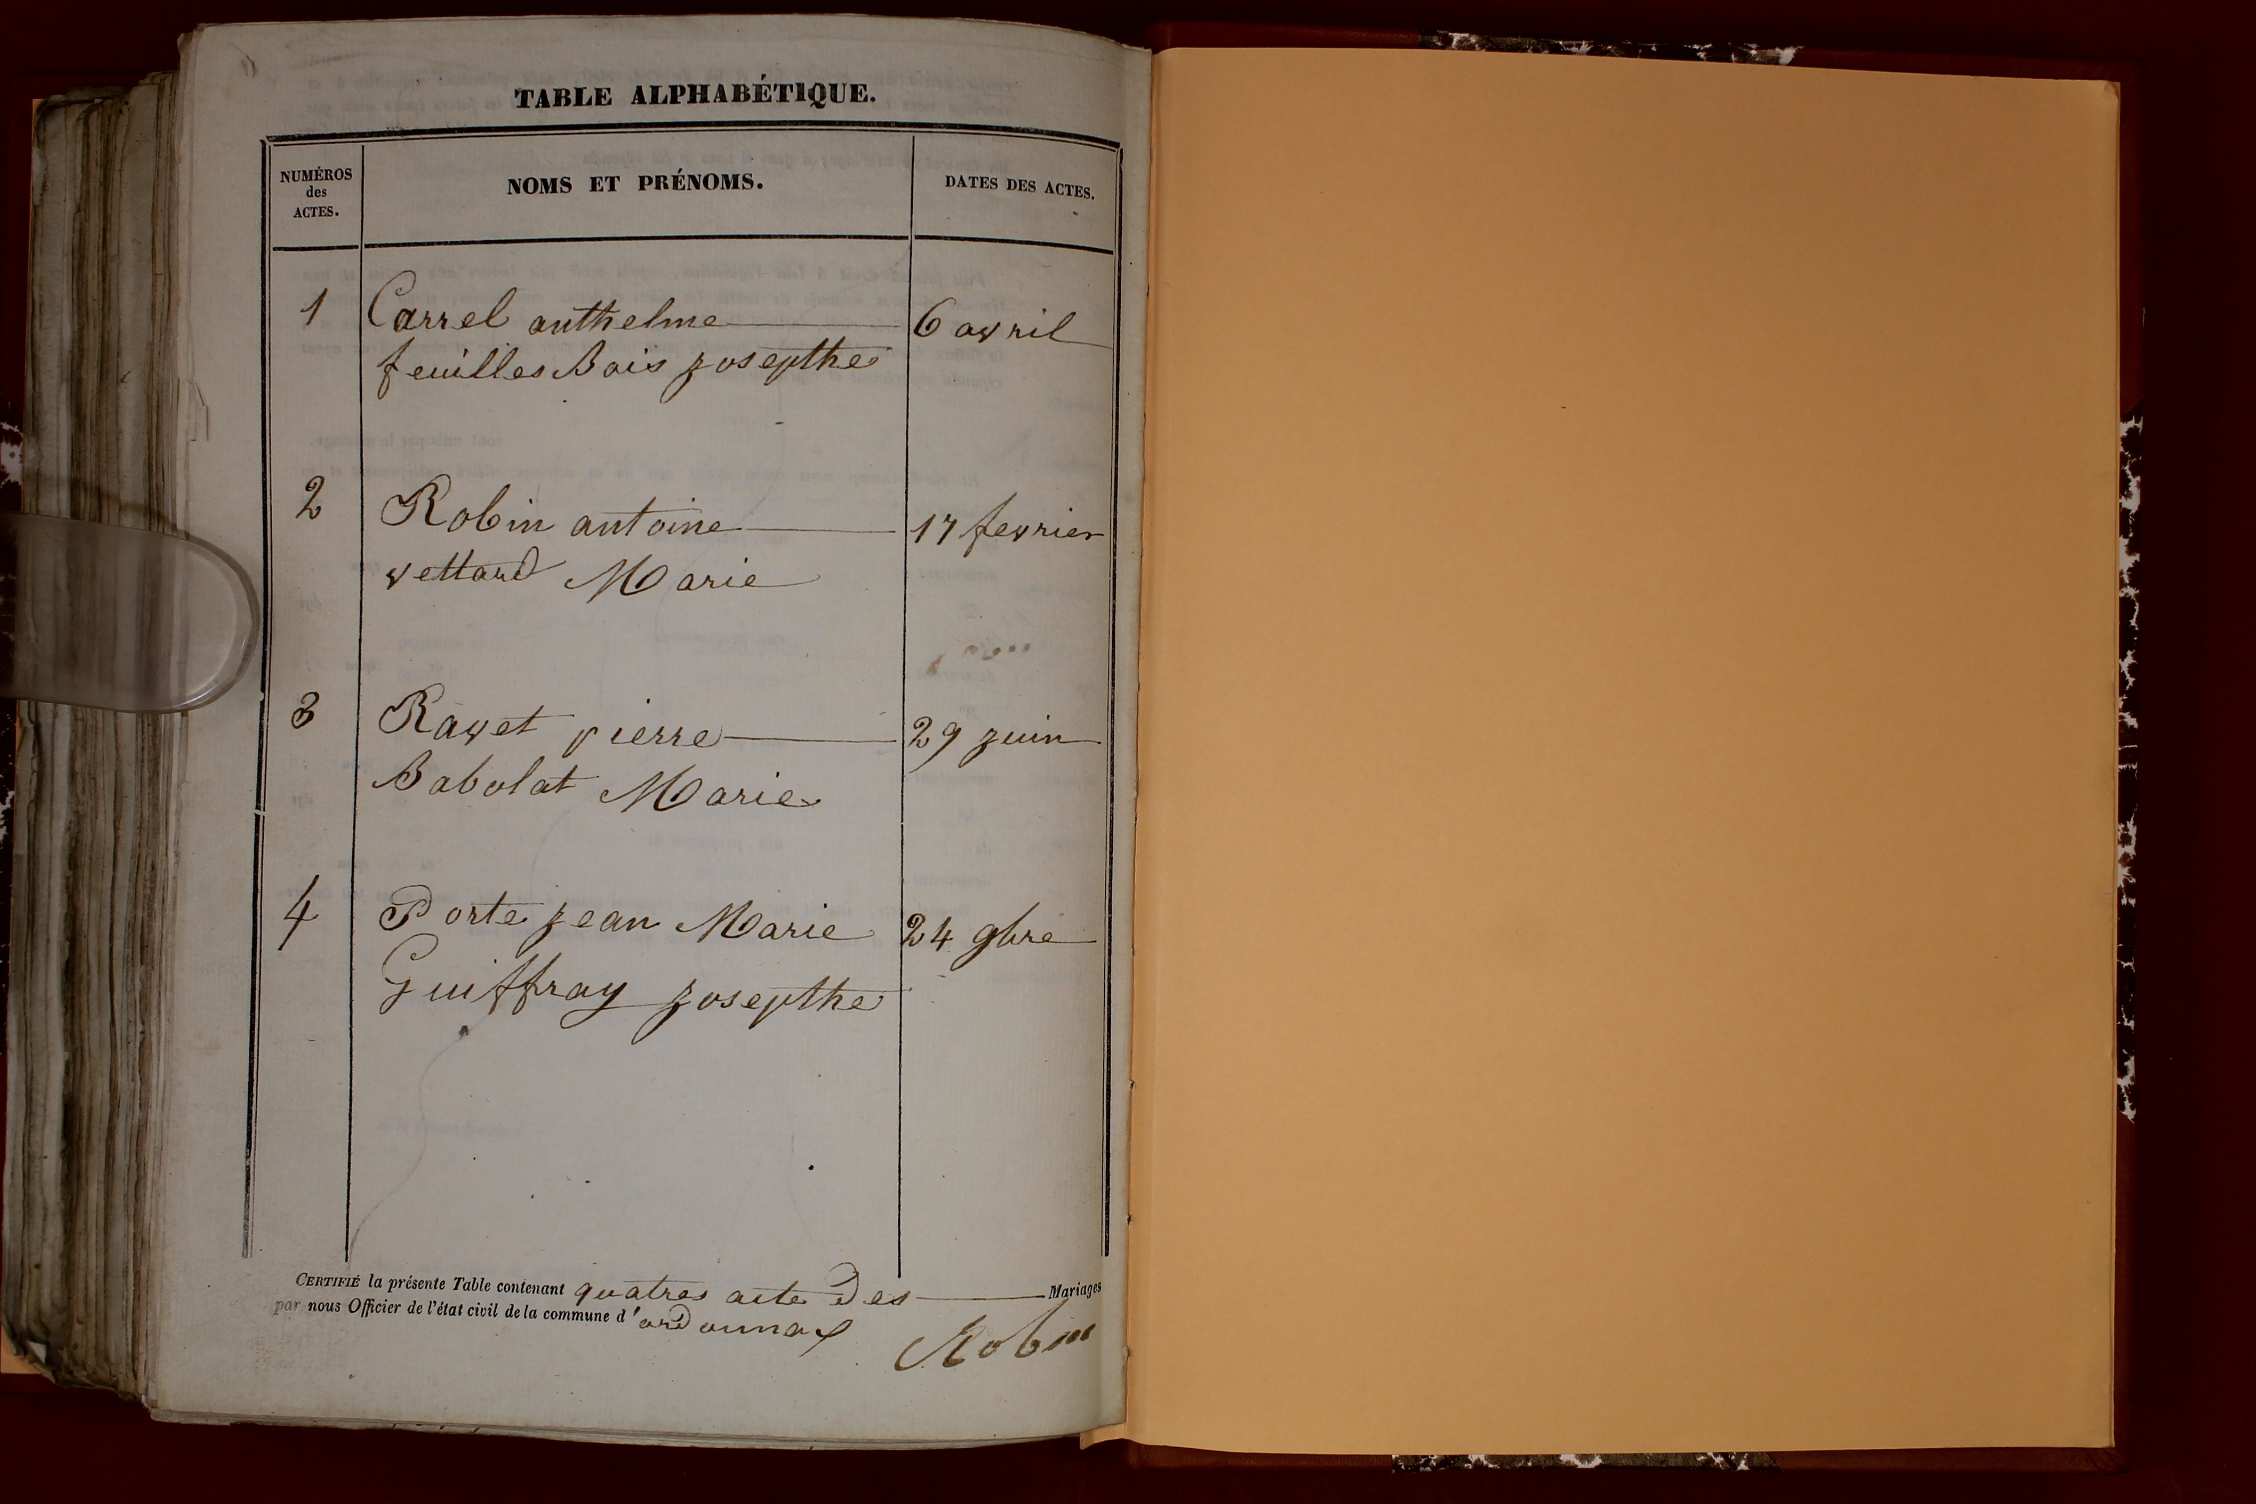 TABLE ALPHABÉTIQUE.
NUMÉROS des ACTES. NOMS ET PRÉNOMS. DATES DES ACTES.
1 Carrel anthelme 6 avril
feuilles Bois josepthe
2 Robin antoine 17 fevrier
vettard Marie
3 Ravet pierre 29 juin
Babolat Marie
4 Porte jean Marie 24 9bre
Guiffray josepthe
CERTIFIÉ la présente Table contenant quatres acte des Mariages
par nous Officier de l'état civil de la commune d'ordonnax
Robin